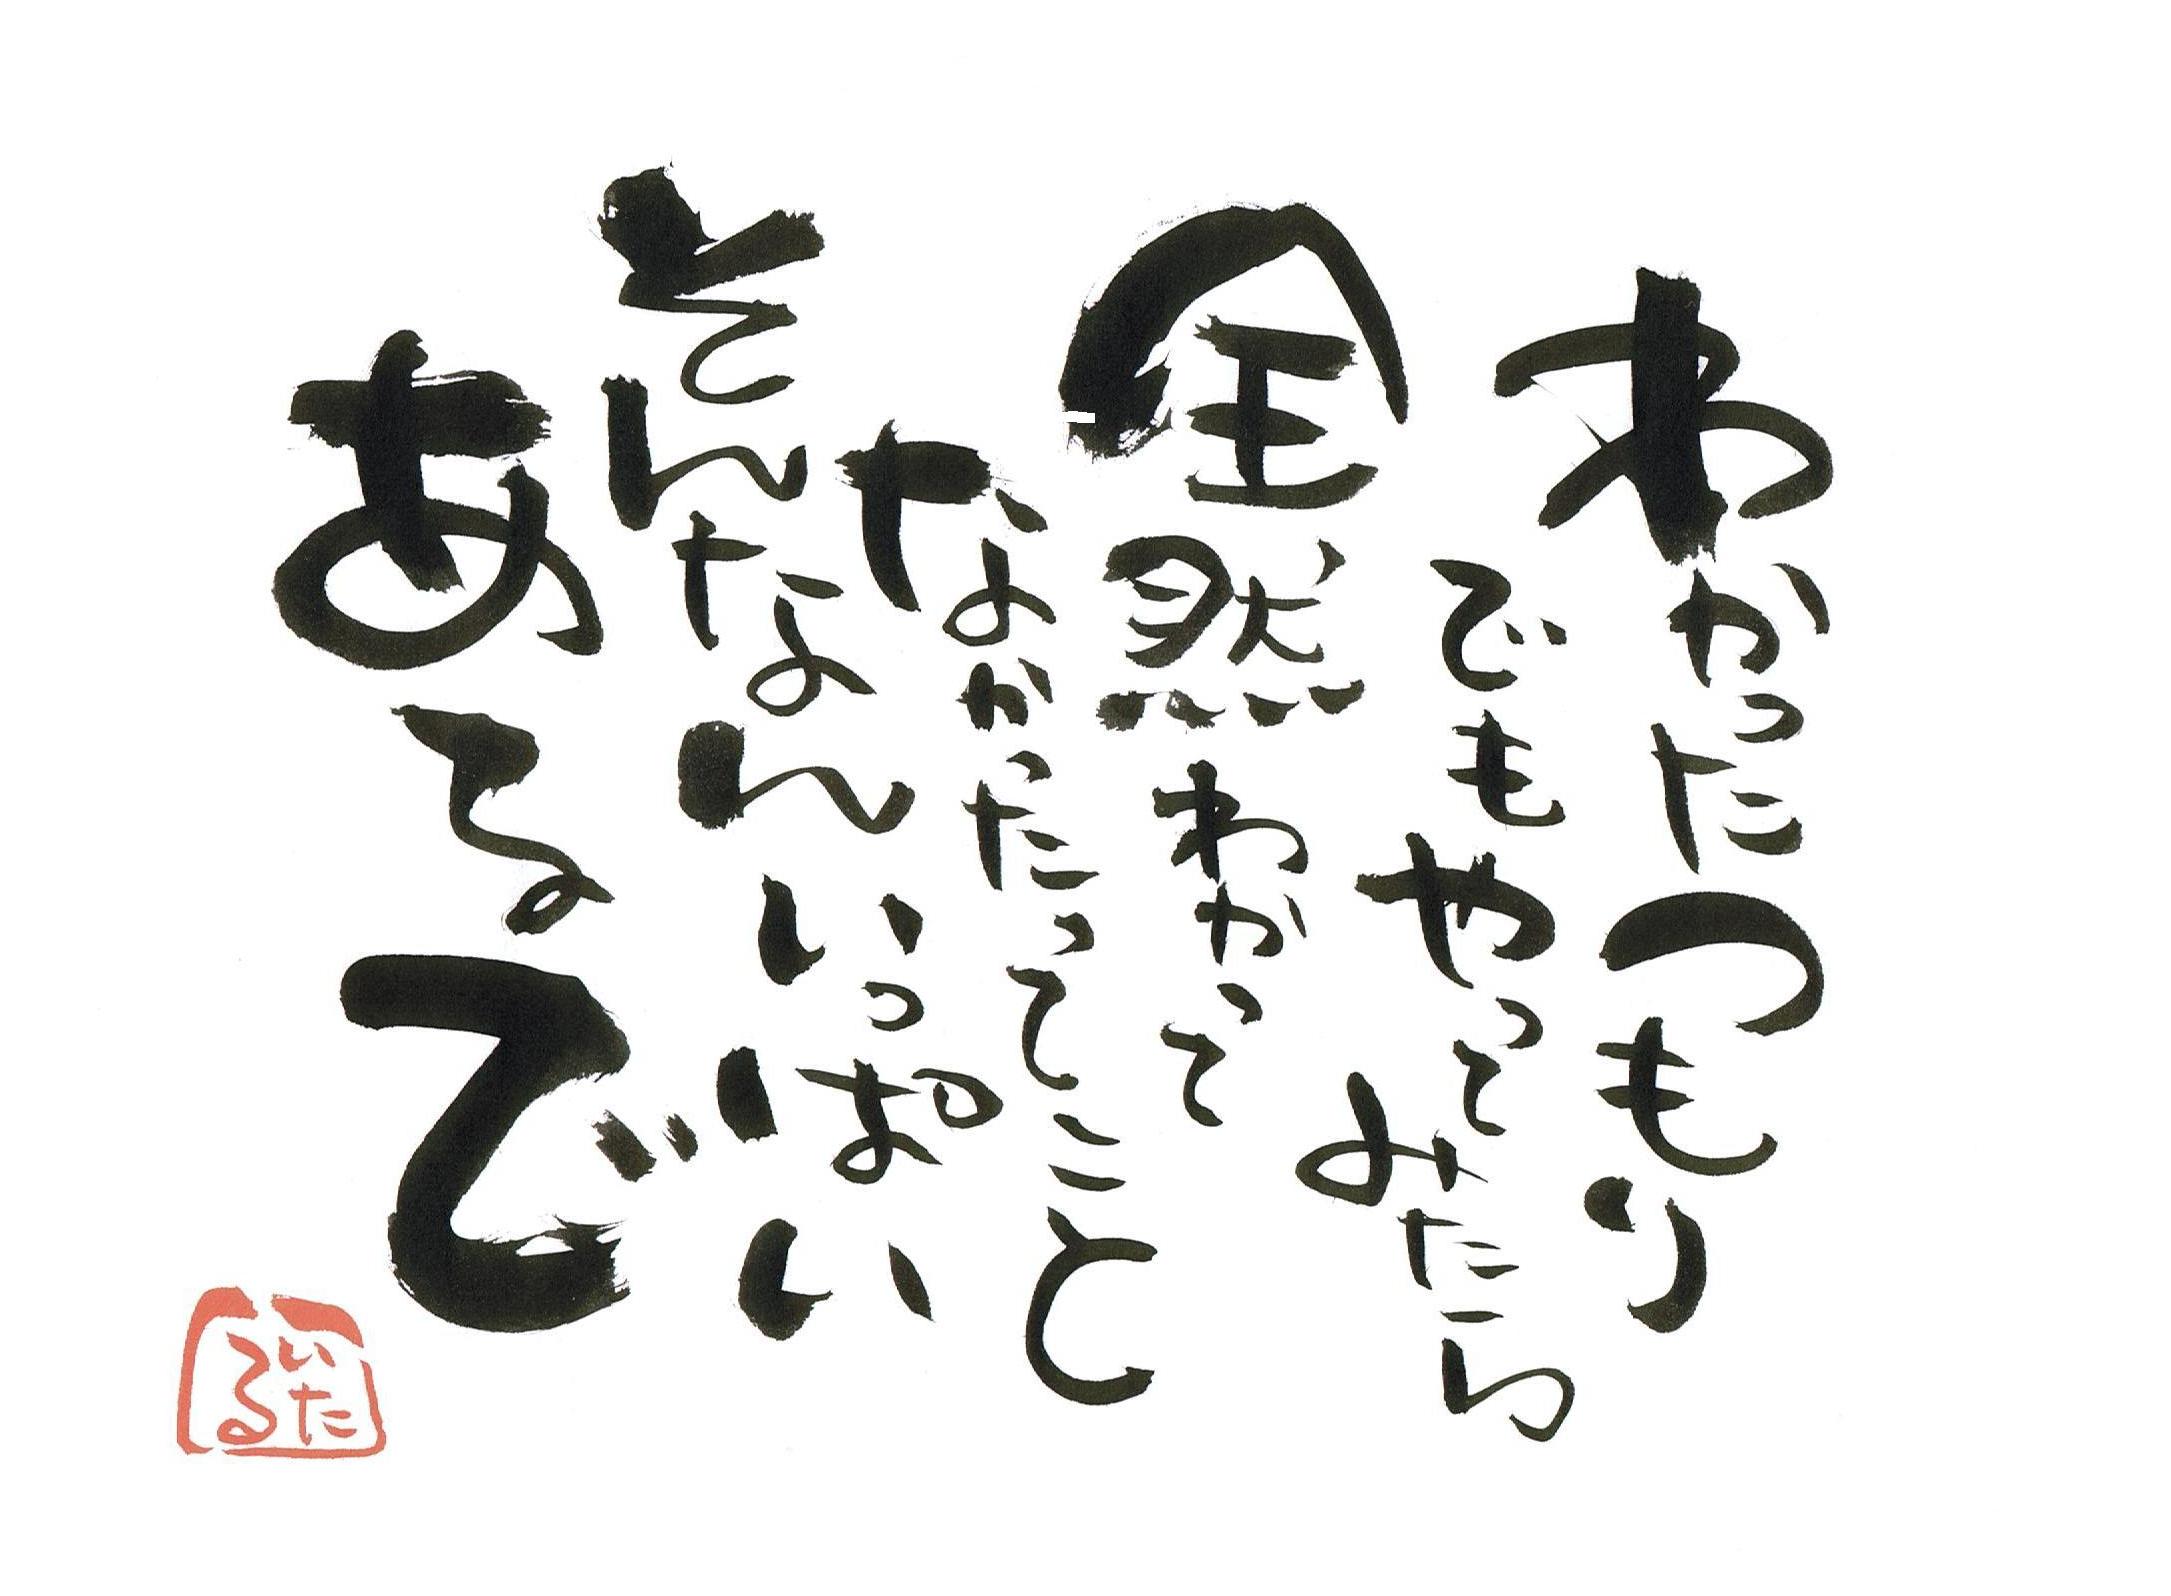 わかったつもり
でもやってみたら
全然わかって
なかったってこと
そんなんいっぱい
あるで
いた
る